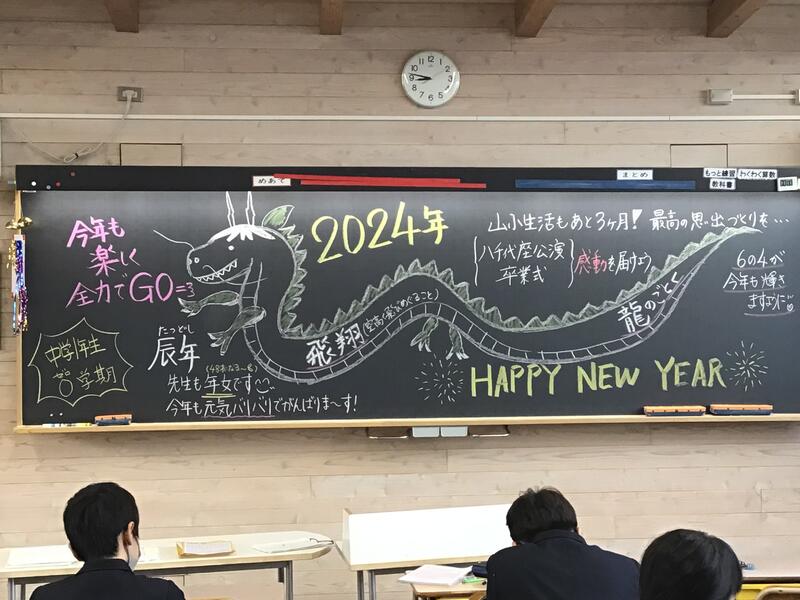 めあて
まとめ
もっと練習
わくわく算数
教科書
今年も
楽しく
全力でGO=3
2024年
山小生活もあと3ヶ月! 最高の思い出づくりを…
八千代座公演
卒業式
感動を届けよう
6の4が
今年も輝き
ますように
中学1年生
0学期
たつどし
辰年
(48才になる〜)
先生も年女です
今年も元気バリバリでがんばりま〜す!
飛翔(空高く飛びめぐること)
龍のごとく
HAPPY NEW YEAR
12
1
2
3
4
5
6
7
8
9
10
11